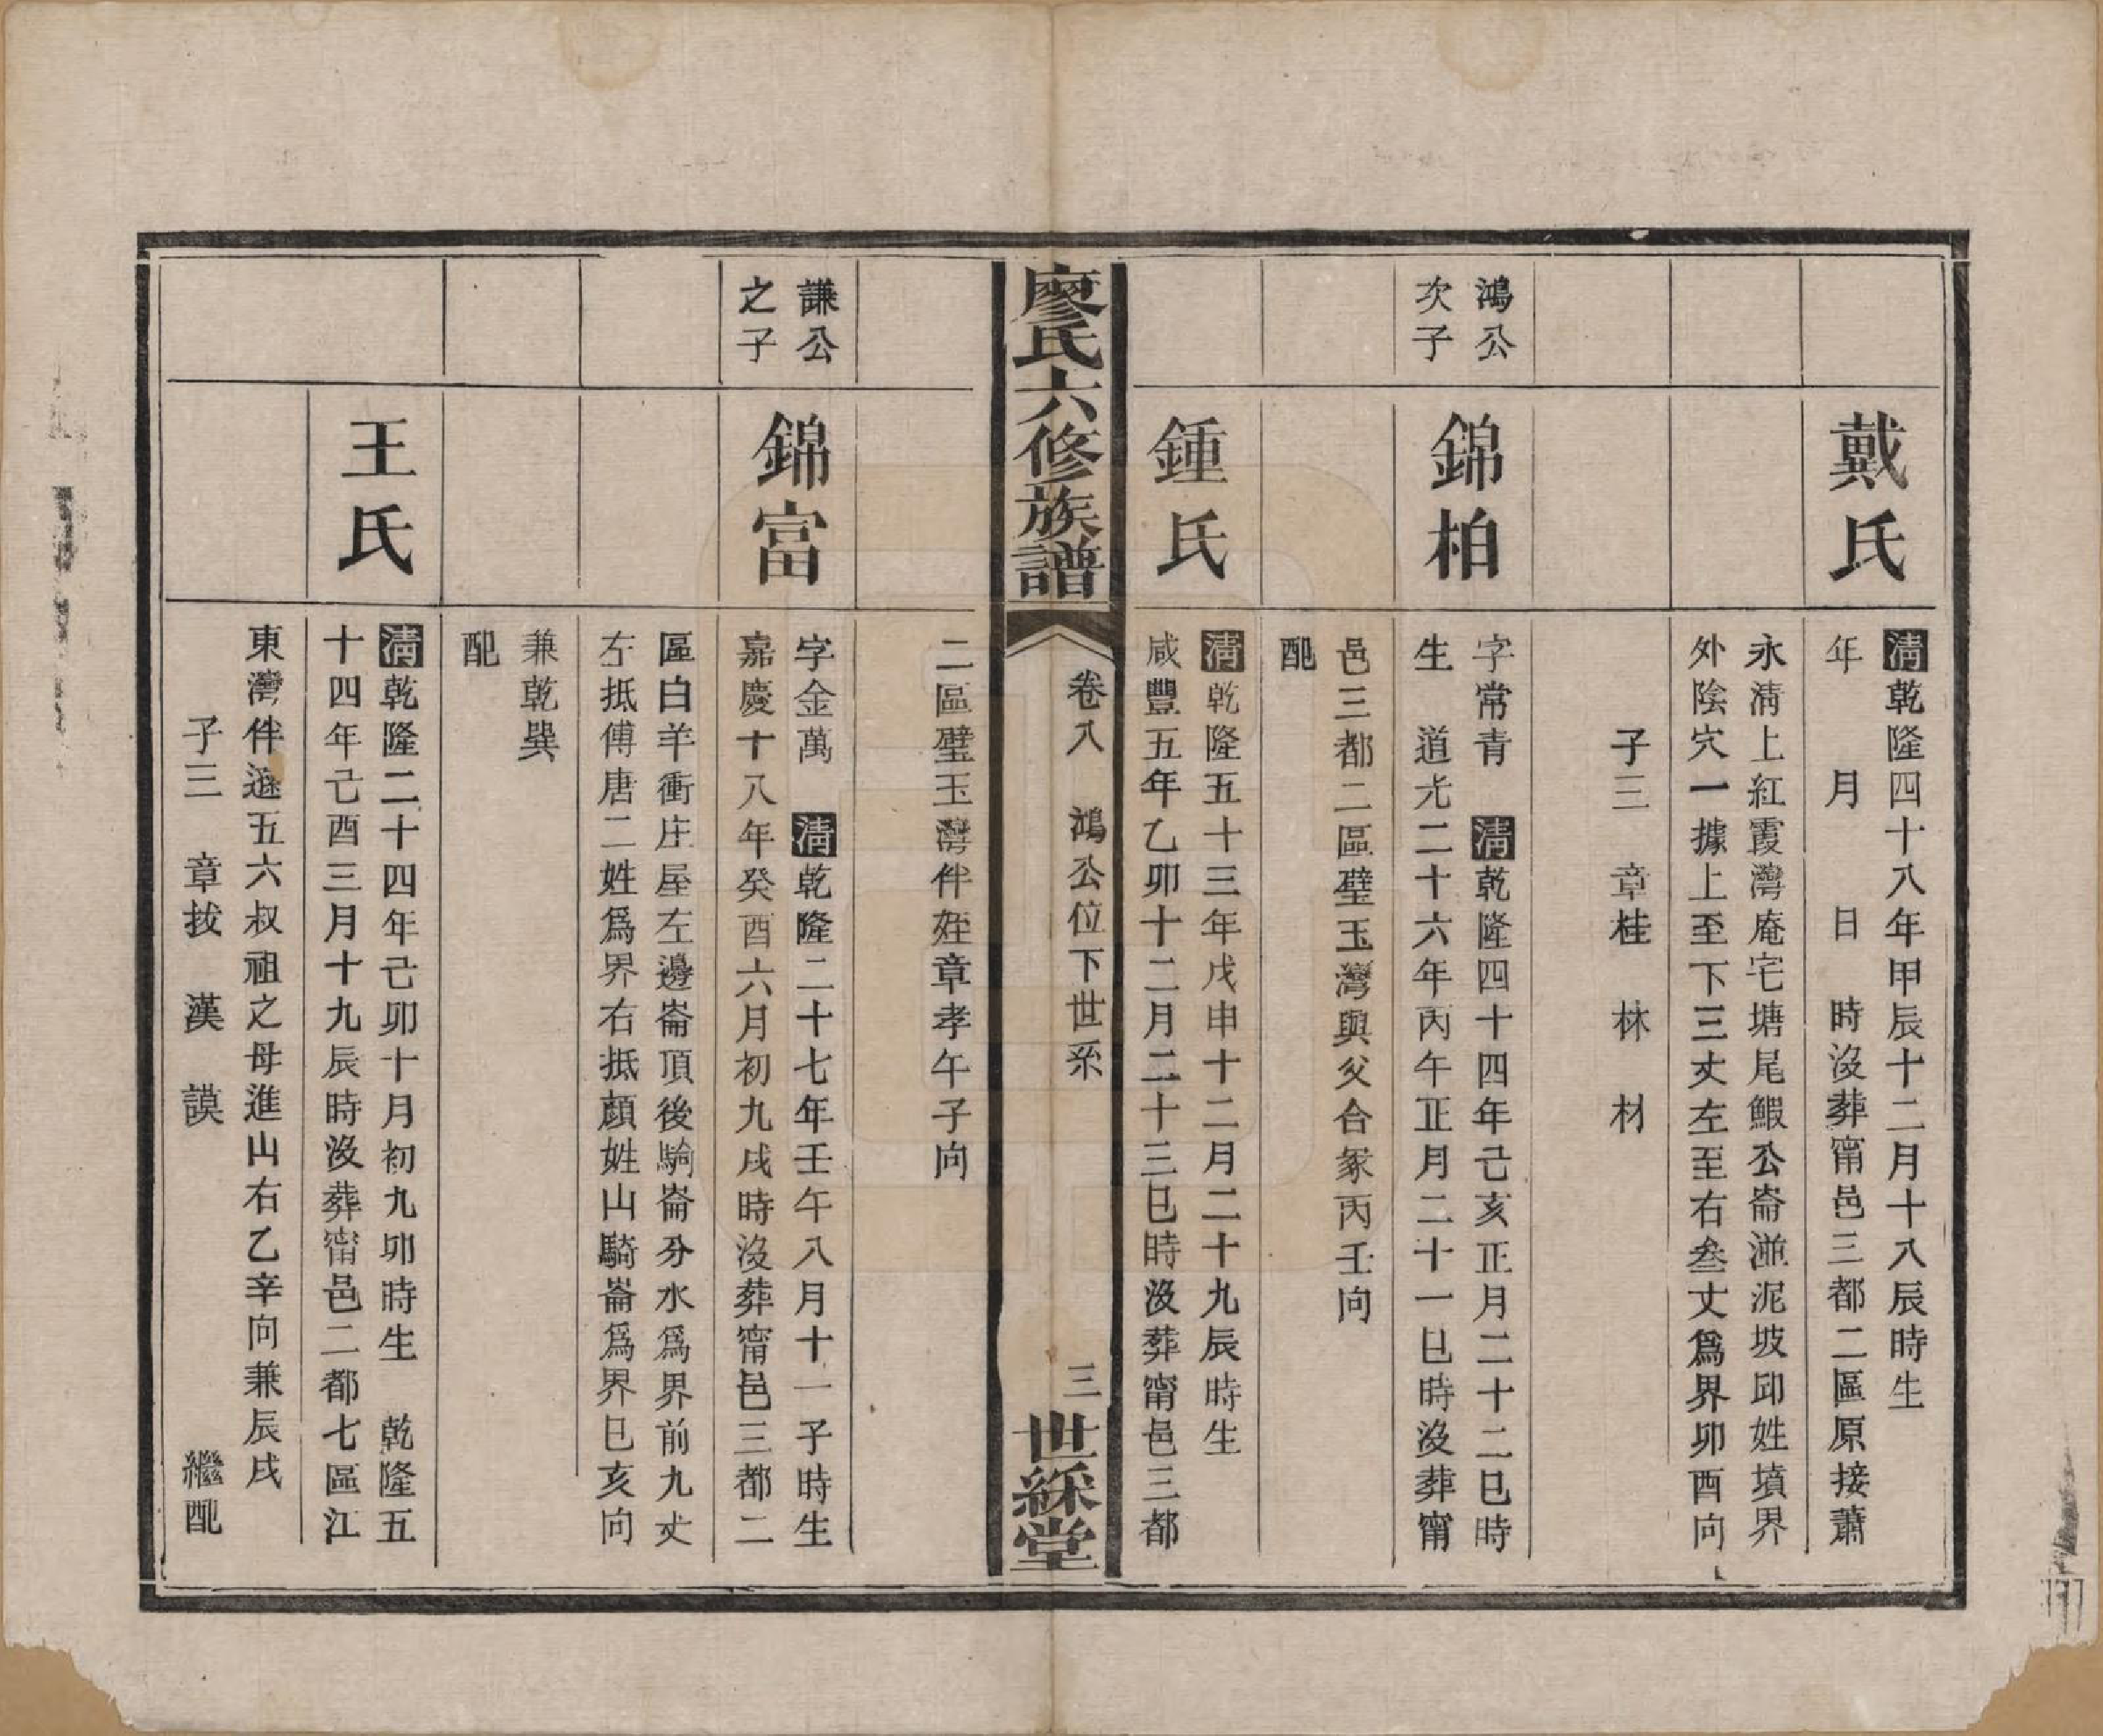 戴氏
清乾隆四十八年甲辰十二月十八辰時生
年　月　日　時沒葬甯邑三都二區原接蕭
永淸上紅霞灣庵宅塘尾鰕公崙𣻌泥坡邱姓墳界
外陰穴一據上至下三丈左至右叁丈爲界卯酉向
子三　章桂　林　材
鴻公
次子
錦柏
字常青　清乾隆四十四年己亥正月二十二巳時
生　道光二十六年丙午正月二十一巳時沒葬甯
邑三都二區璧玉灣與父合冢丙壬向
配
鍾氏
清乾隆五十三年戊申十二月二十九辰時生
咸豐五年乙卯十二月二十三巳時沒葬甯邑三都
廖氏六修族譜
卷八　鴻公位下世系
三
世綵堂
二區璧玉灣伴姪章孝午子向
謙公
之子
錦富
字金萬　清乾隆二十七年壬午八月十一子時生
嘉慶十八年癸酉六月初九戌時沒葬甯邑三都二
區白羊衝庄屋左邊崙頂後騎崙分水爲界前九丈
左抵傅唐二姓爲界右抵顏姓山騎崙爲界巳亥向
兼乾巽
配
王氏
清乾隆二十四年己卯十月初九卯時生　乾隆五
十四年己酉三月十九辰時沒葬甯邑二都七區江
東灣伴遜五六叔祖之母進山右乙辛向兼辰戌
子三　章拔　漢　謨　繼配